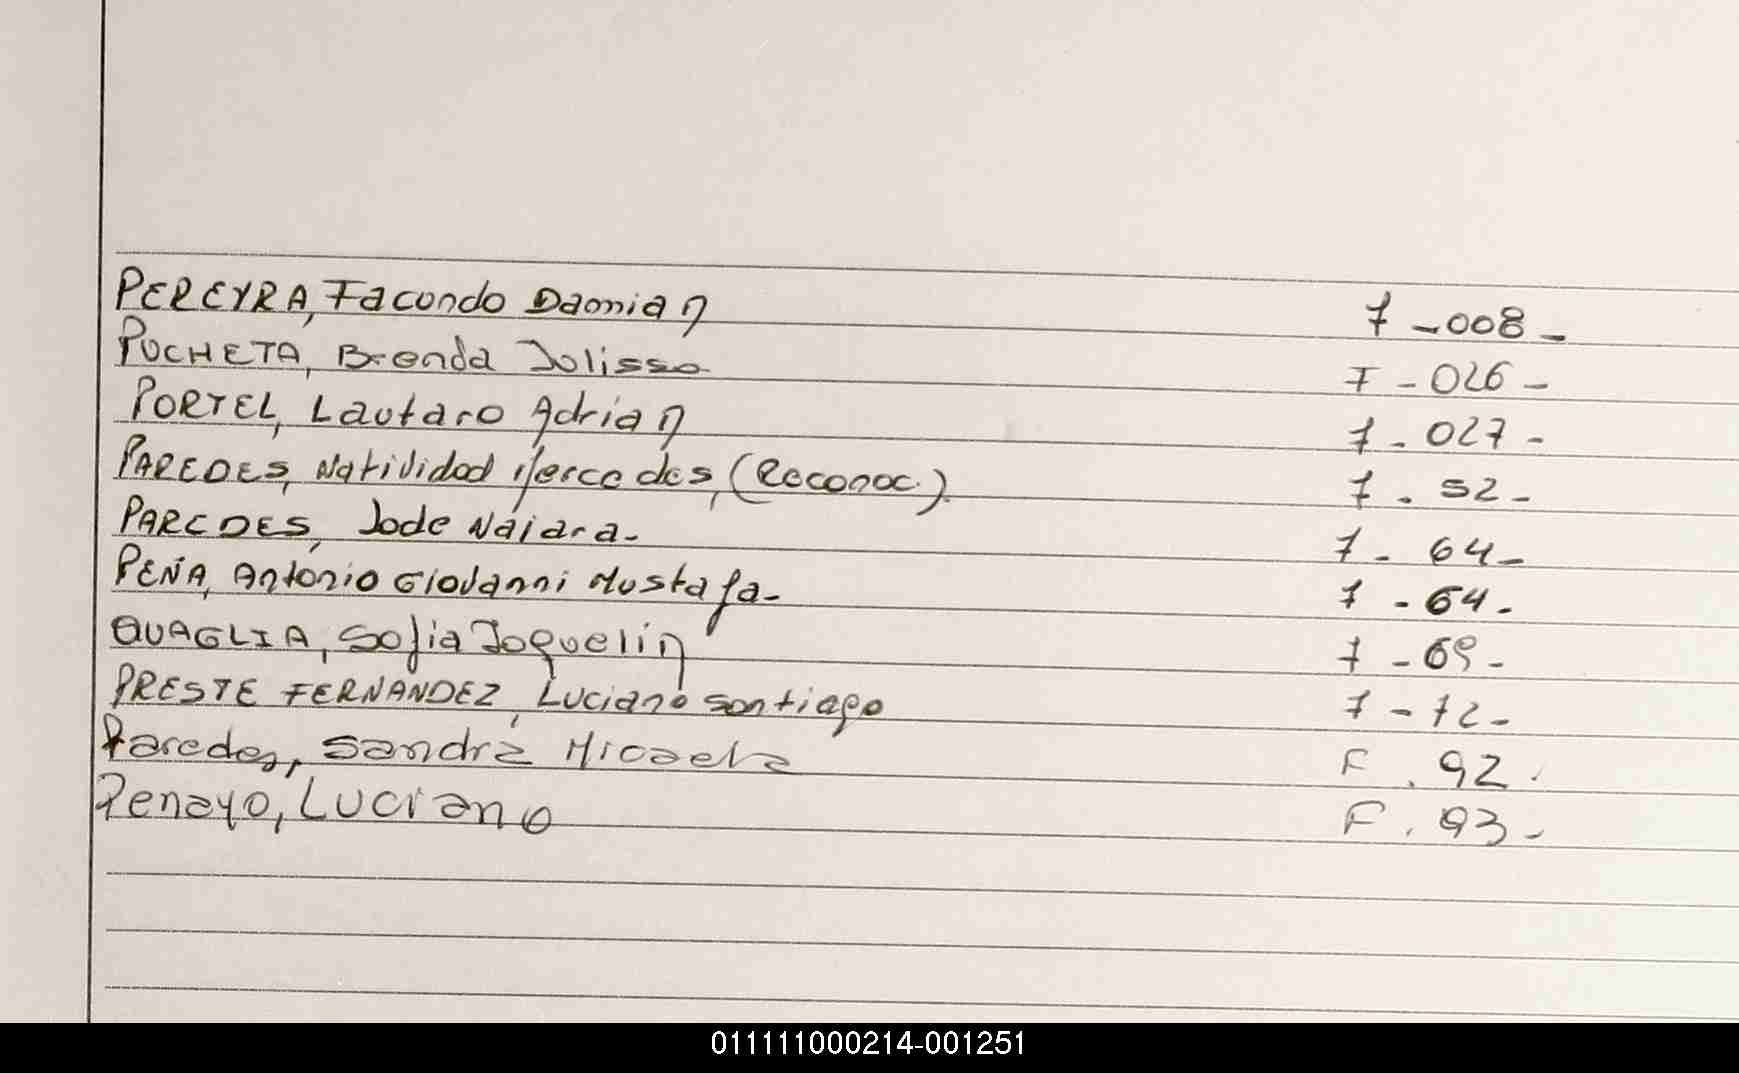 PEREYRA, Facundo Damian F - 008 -
PUCHETA, Brenda Julissa F - 026 -
PORTEL, Lautaro Adrian F - 027 -
PAREDES, Natividad Mercedes, (Reconoc.) F - 52 -
PAREDES, Jade Naiara - F - 64 -
PEÑA, Antonio Giovanni Mustafa - F - 64 -
QUAGLIA, Sofia Joquelin F - 69 -
PRESTE FERNANDEZ, Luciano Santiago F - 72 -
Paredes, Sandra Micaela F . 92 .
Penayo, Luciano F . 93 -
011111000214-001251